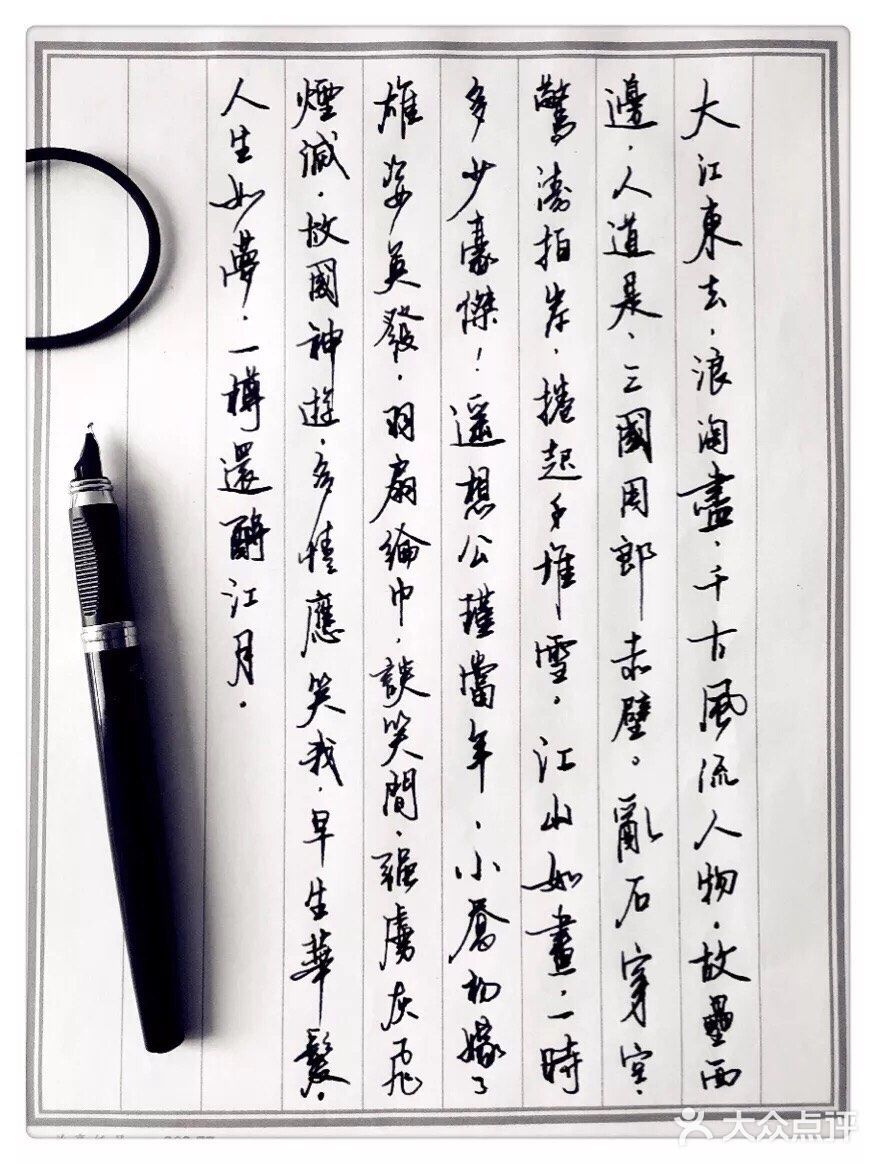 大江東去，浪淘盡，千古風流人物。故壘西
邊，人道是、三國周郎赤壁。亂石穿空，
驚濤拍岸，捲起千堆雪。江山如畫，一時
多少豪傑！遥想公瑾當年，小喬初嫁了
雄姿英發，羽扇綸巾，談笑間，強虜灰飛
煙滅。故國神遊，多情應笑我，早生華髮。
人生如夢，一樽還酹江月。
大众点评